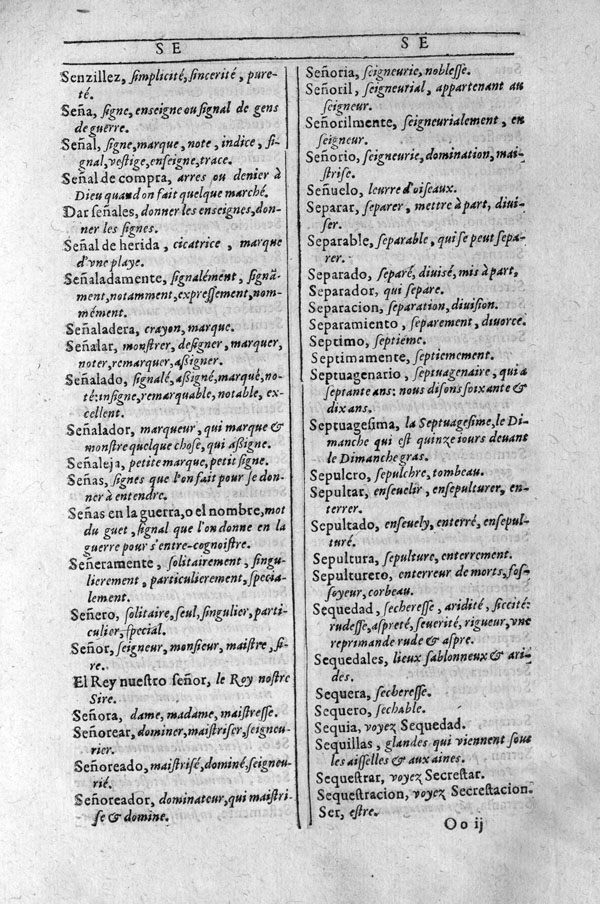 S E
Senzillez, ſimplicité, ſincerité, pure-
té.
Seña, ſigne, enseigne ou ſignal de gens
de guerre.
Señal, ſigne, marque, note, indice, ſi-
gnal, veſtige, enſeigne, trace.
Señal de compra, arres ou denier à
Dieu quand on fait quelque marché.
Dar ſeñales, donner les enseignes, don-
ner les ſignes.
Señal de herida, cicatrice, marque
d'vne playe.
Señaladamente, ſignalément, ſignã-
ment, notamment, expreſſement, nom-
mément.
Señaladera, crayon, marque.
Señalar, monſtrer, deſigner, marquer,
noter, remarquer, aßigner.
Señalado, ſignalé, aßigné, marqué, no-
té: inſigne, remarquable, notable, ex-
cellent.
Señalador, marqueur, qui marque &
monſtre quelque choſe, qui aßigne.
Señaleja, petite marque, petit ſigne.
Señas, ſignes que l'on fait pour ſe don-
ner à entendre.
Señas en la guerra, o el nombre, mot
du guet, ſignal que l'on donne en la
guerre pour s'entre-cognoiſtre.
Señeramente, ſolitairement, ſingu-
lierement, particulierement, ſpecia-
lement.
Señero, ſolitaire, ſeul, ſingulier, parti-
culier, ſpecial.
Señor, ſeigneur, monſieur, maiſtre, ſi-
re.
El Rey nueſtro ſeñor, le Roy noſtre
Sire.
Señora, dame, madame, maiſtreſſe.
Señorear, dominer, maiſtriſer, ſeigneu-
rier.
Señoreado, maiſtriſé, dominé, ſeigneu-
rié.
Señoreador, dominateur, qui maiſtri-
ſe & domine.
S E
Señoria, ſeigneurie, nobleſſe.
Señoril, ſeigneurial, appartenant au
ſeigneur.
Señorilmente, ſeigneurialement, en
ſeigneur.
Señorio, ſeigneurie, domination, mai-
ſtriſe.
Señuelo, leurre d'oiſeaux.
Separar, ſeparer, mettre à part, diui-
ſer.
Separable, ſeparable, qui ſe peut ſepa-
rer.
Separado, ſeparé, diuisé, mis à part.
Separador, qui ſepare.
Separacion, ſeparation, diuiſion.
Separamiento, ſeparement, diuorce.
Septimo, ſeptieme.
Septimamente, ſeptiemement.
Septuagenario, ſeptuagenaire, qui a
ſeptante ans: nous diſons ſoixante &
dix ans.
Septuageſima, la Septuageſime, le Di-
manche qui eſt quinze iours deuant
le Dimanche gras.
Sepulcro, ſepulchre, tombeau.
Sepultar, enſeuelir, enſepulturer, en-
terrer.
Sepultado, enſeuely, enterré, enſepul-
turé.
Sepultura, ſepulture, enterrement.
Sepulturero, enterreur de morts, foſ-
ſoyeur, corbeau.
Sequedad, ſechereſſe, aridité, ſiccité:
rudeſſe, aſpreté, ſeuerité, rigueur, vne
reprimande rude & aſpre.
Sequedales, lieux ſablonneux & ari-
des.
Sequera, ſechereſſe.
Sequero, ſechable.
Sequia, voyez Sequedad.
Sequillas, glandes qui viennent ſous
les aiſſelles & aux aines.
Sequeſtrar, voyez Secreſtar.
Sequeſtracion, voyez Secreſtacion.
Ser, eſtre.
O o ij